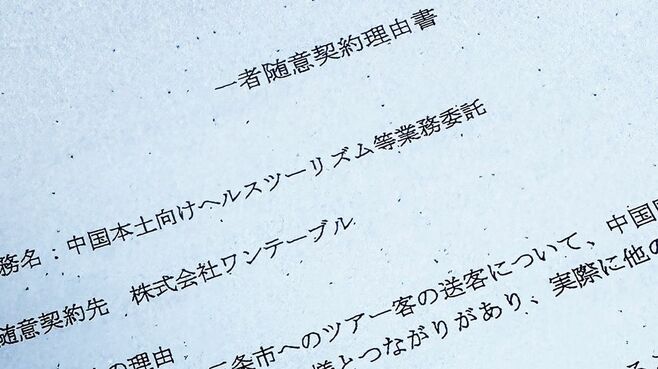 一者随意契約理由書
務名：中国本土向けヘルスツーリズム等業務委託
随意契約先 株式会社ワンテーブル
の理由
三条市へのツアー客の送客について、中国
様とつながりがあり、実際に他の